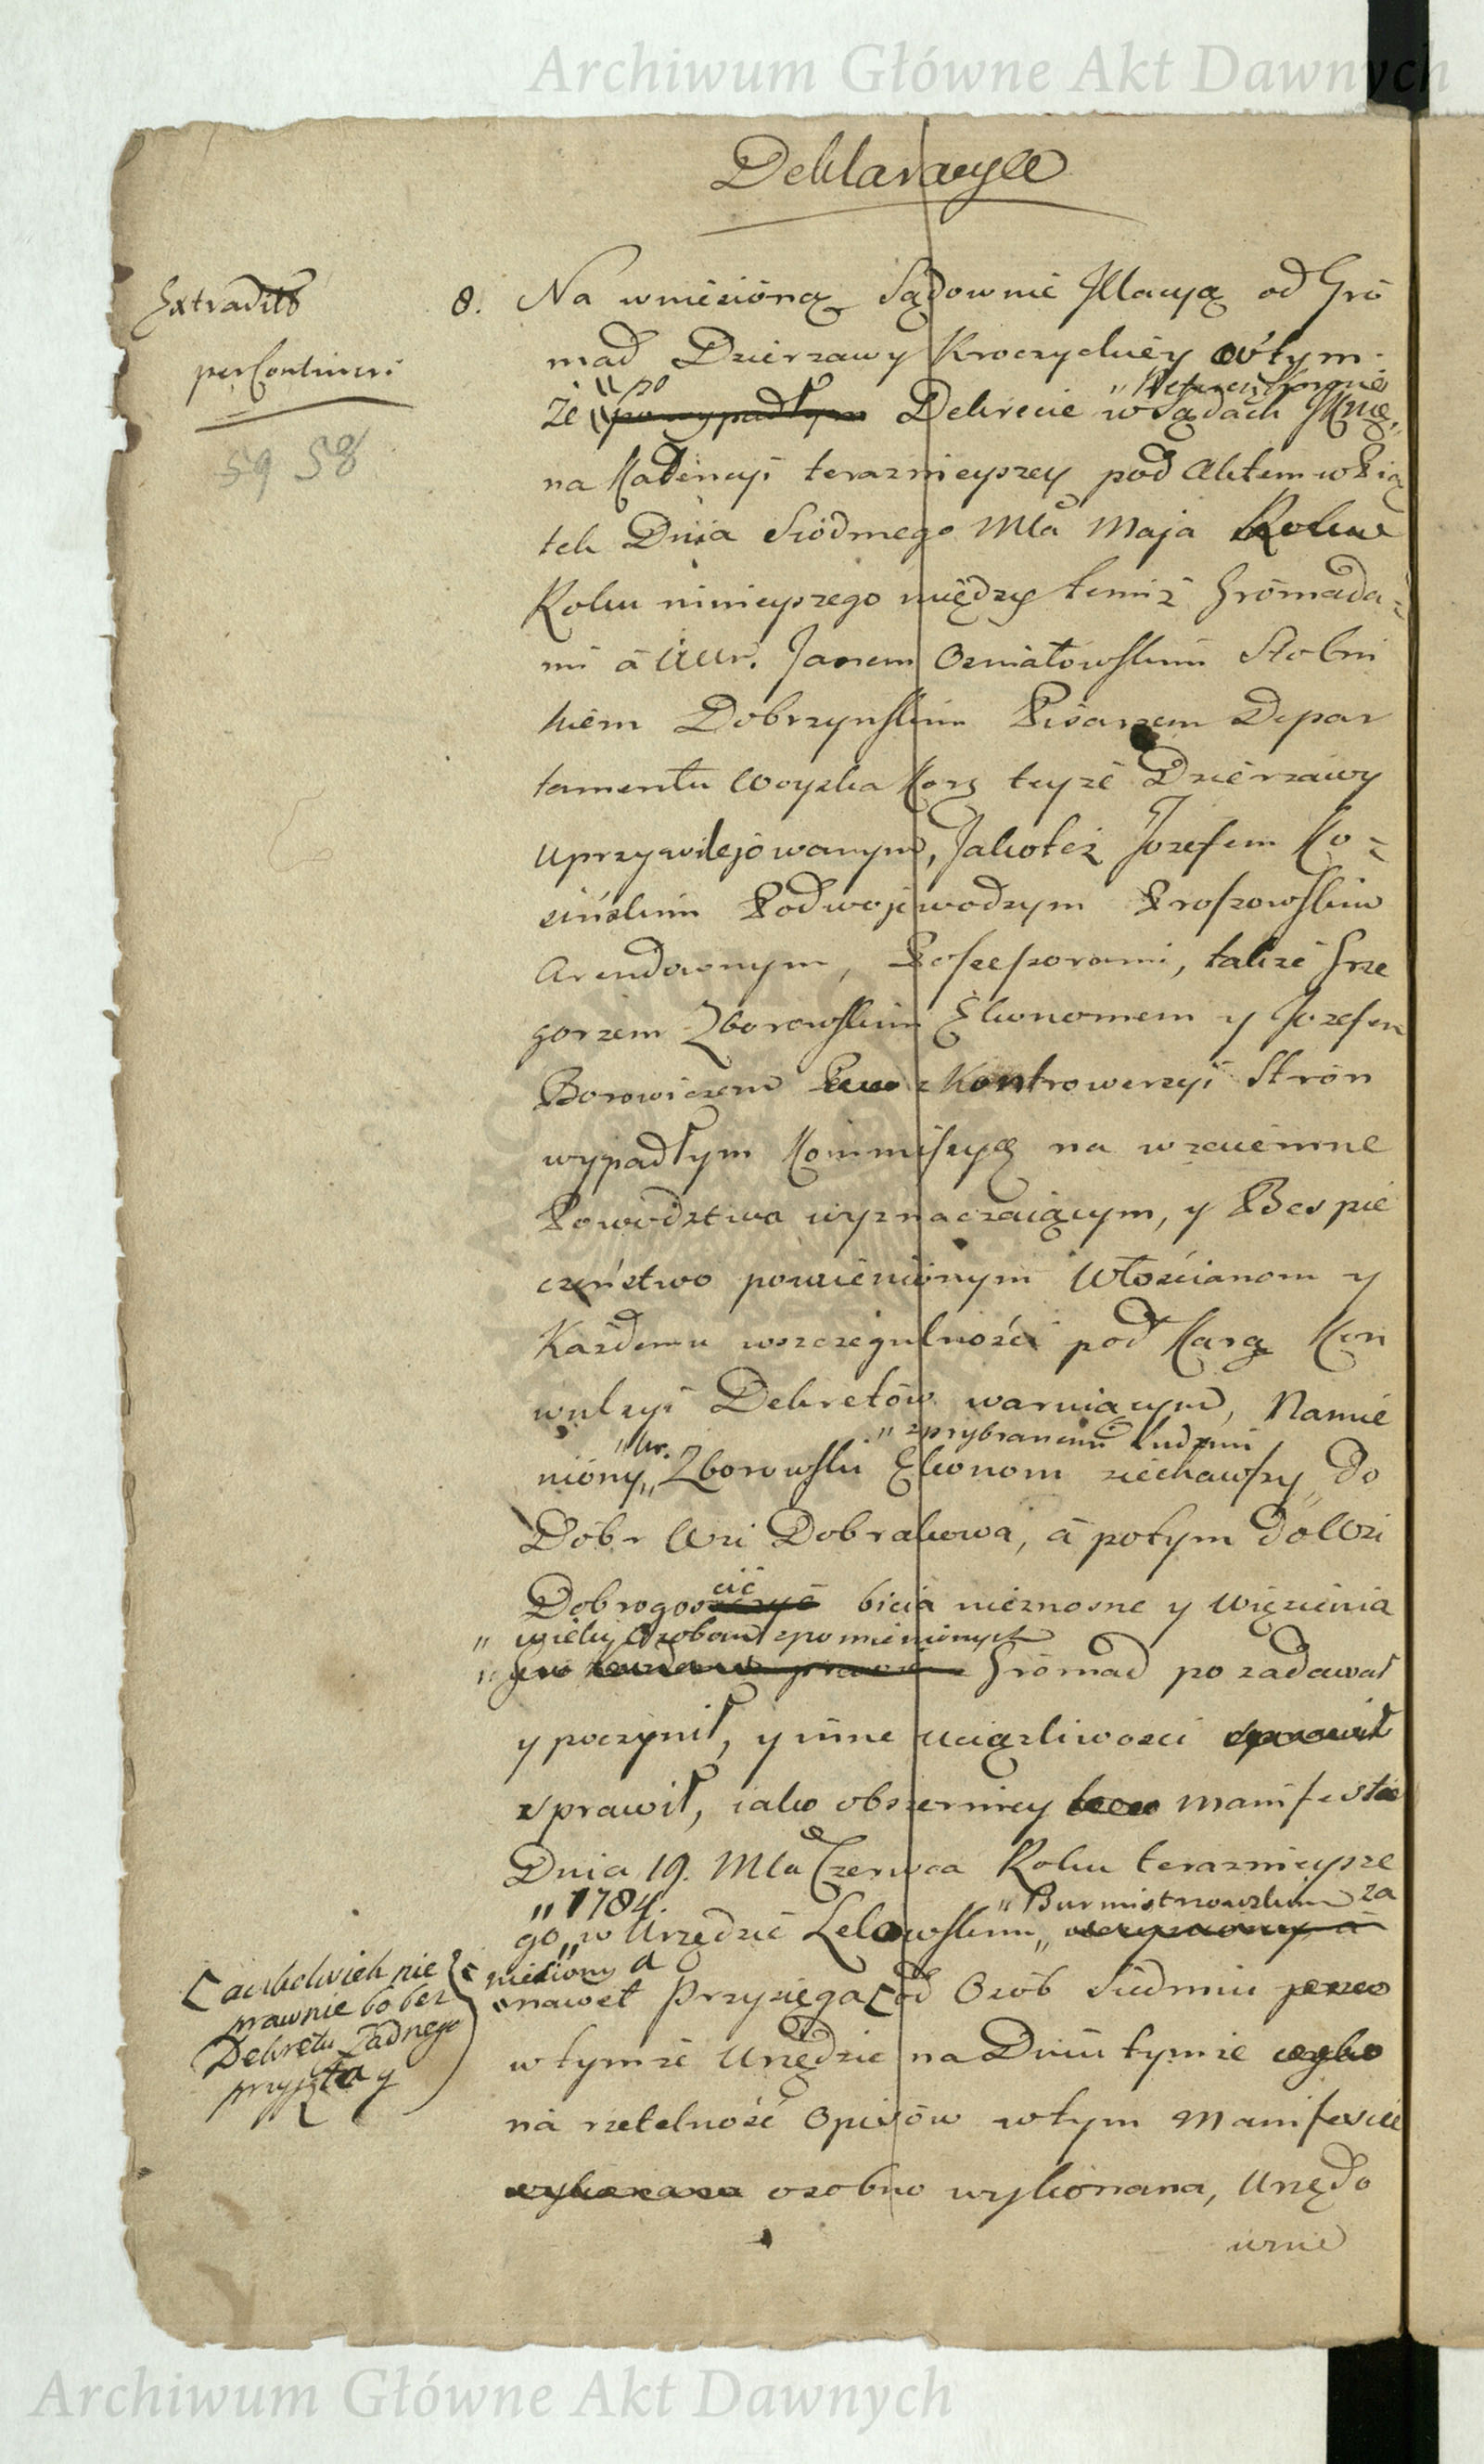 Archiwum Główne Akt Dawnych
Deklaracya
Extradita
per Contineri
59 58
8. Na wniesioną Sądownie Illacyą od Gro
mad Dzierzawy Kroczyckiey o tym
po
że po wypadłym Dekrecie w Sądach
na Kadencyi teraznieyszey pod Aktem w Pią
tek Dnia Siódmego Mca Maja Roku
Roku ninieyszego między temiż Gromada=
mi a Ur. Janem Ozniałowskim Stolni
kiem Dobrzynskim Pisarzem Depar
tamentu Woyska Kor. teyże Dzierzawy
uprzywilejowanym, Jakoteż Jozefem Ko=
sińskim Podwojewodzym Proszowskim
Arendownym, Possessorami, także Grze
gorzem Zborowskim Ekonomem y Jozefem
Borowiczem z Kontrowersyi Stron
wypadłym Kommissyą na wzaiemne
Powodztwa wyznaczaiącym, y Bespie
czeństwo powienionym Włościanom y
Każdemu wszczegulności pod Karą Kon
wulsyi Dekretów waruiącym, Namie
" Ur. " z przybranemi Ludzmi
niony, Zborowski Ekonom ziechawszy do
Dóbr Wsi Dobrakowa, a potym do Wsi
cic
Dobrogoszczyc bicia nieznosne y więzienia
" wielu Osobom z pomienionych
Gromad po zadawał
y poczynił, y inne uciązliwosci sprawił
sprawił, iako obszerniey Manifesta
Dnia 19. Mca Czerwca Roku teraznieysze
" 1784 " Burmistrzowskim za
go w Urzędzie Lelowskim,
niesiony a
nawet Przysięga od Osób Siedmiu przez
w tymże Urzędzie na Dniu tymże
na rzetelność Opisów w tym Manifescie
wykonana osobno wykonana, Urzędo
wnie
aczkolwiek nie
prawnie bo bez
Dekretu Zadnego
przyjęta y
Archiwum Główne Akt Dawnych